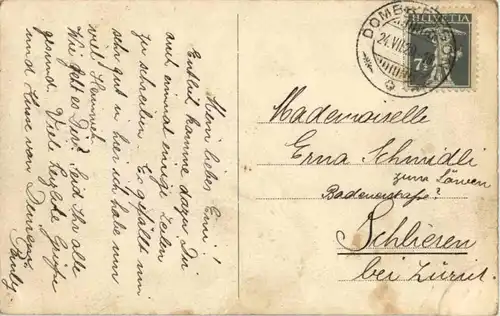 Mein liebes Erni!
Endlich komme dazu Dir
auch einmal einige Zeilen
zu schreiben. Es gefällt mir
sehr gut in hier, ich habe nur
viel Heimweh.
Wie geht es Dir? Seid Ihr alle
gesund. Viele herzliche Grüsse
und Küsse von Deinem
HELVETIA
24.VII
Mademoiselle
Erna Schmidli
zum Löwen
Badenerstraße?
Schlieren
bei Zürich